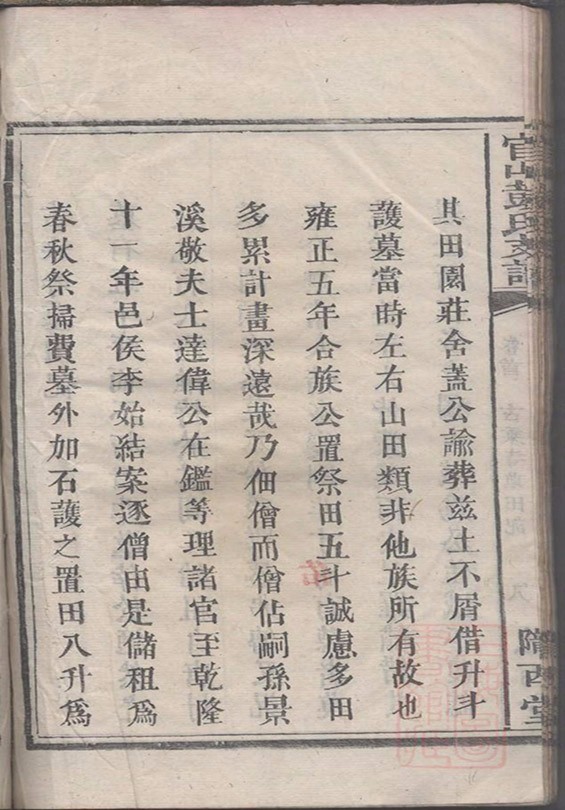 官山彭氏族譜
卷首
隴西堂
其田園莊舍蓋公諭葬兹土不屑借升斗
護墓當時左右山田類非他族所有故也
雍正五年合族公置祭田五斗誠慮多田
多累計畫深遠哉乃佃僧而僧佔嗣孫景
溪敬夫士達偉公在鑑等理諸官至乾隆
十一年邑侯李始結案逐僧由是儲租為
春秋祭掃費墓外加石護之置田八升為